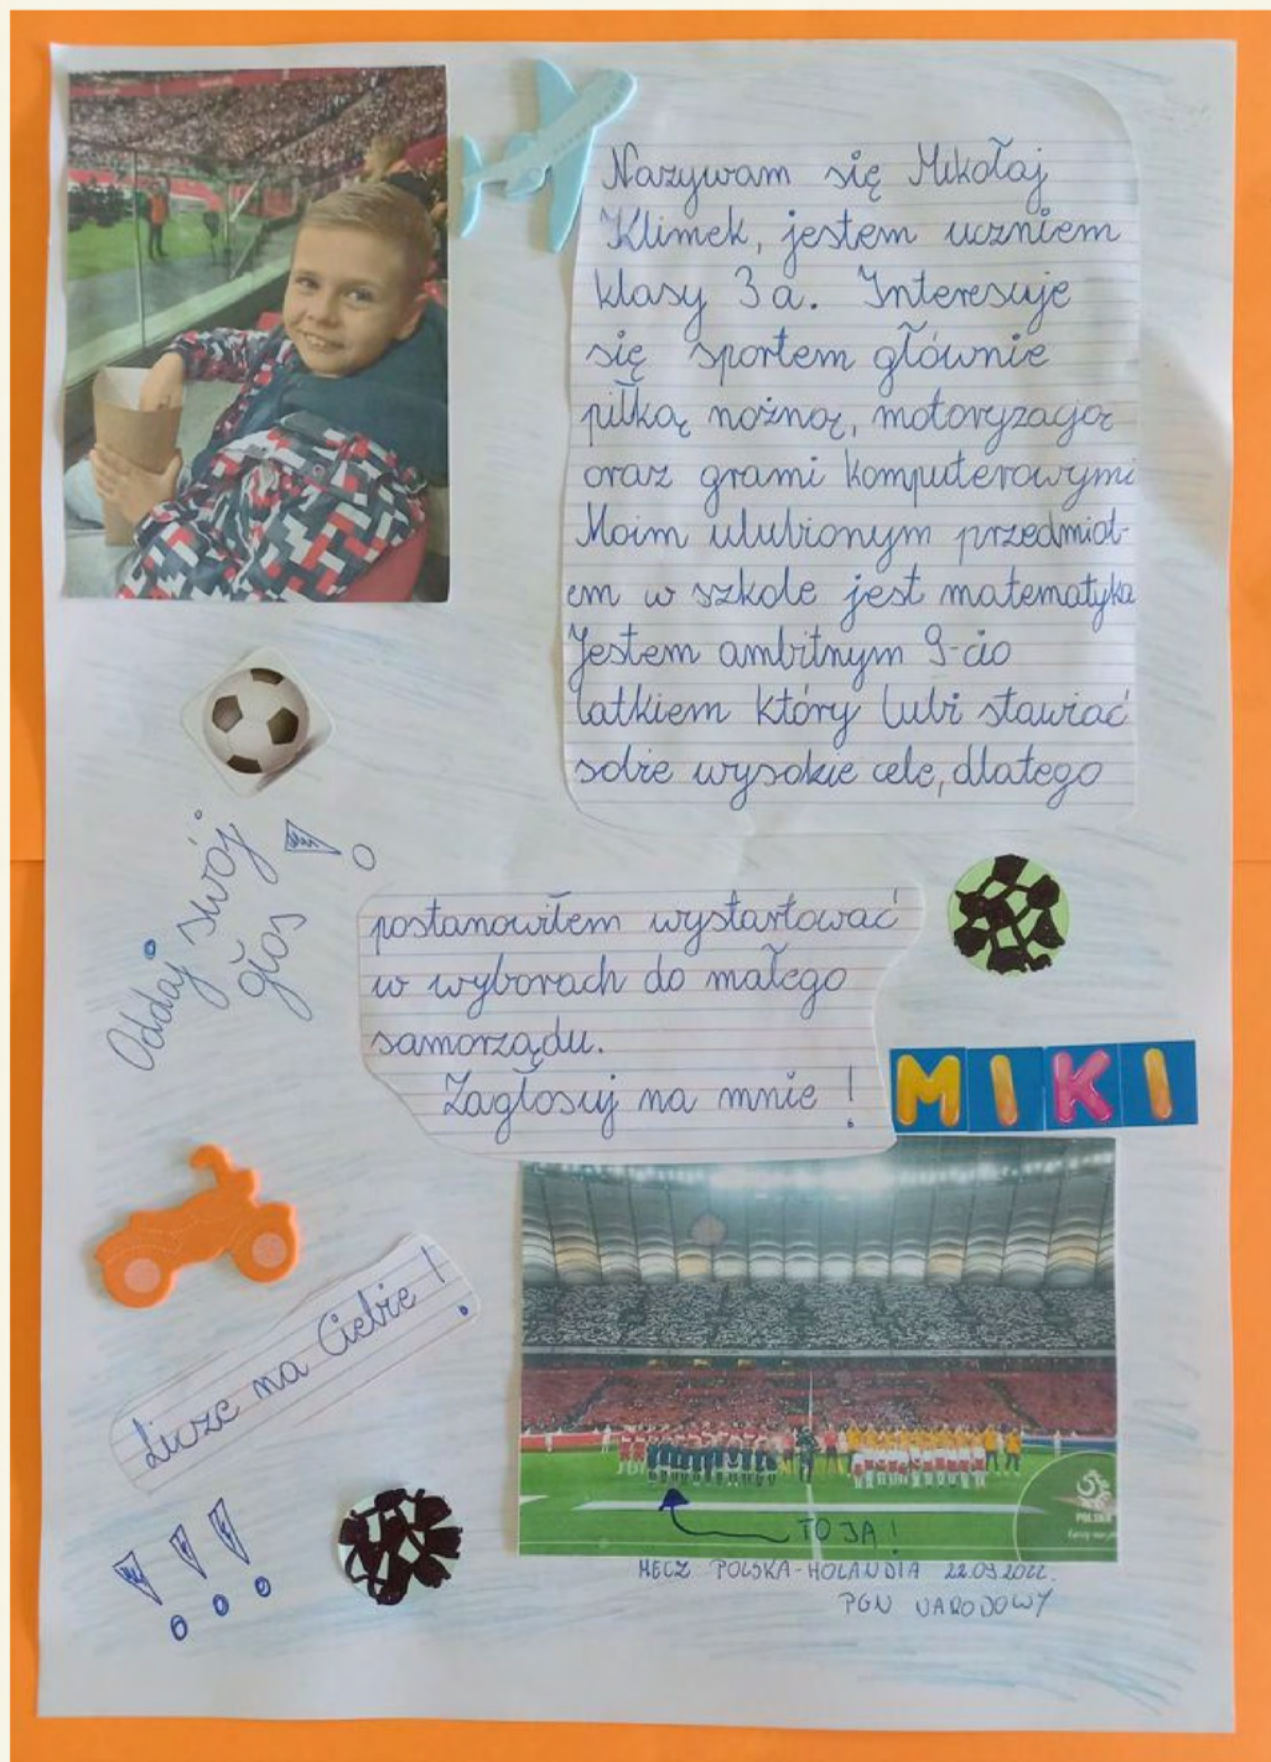 Nazywam się Mikołaj
Klimek, jestem uczniem
klasy 3a. Interesuje
się sportem głównie
piłką nożną, motoryzacją
oraz grami komputerowymi
Moim ulubionym przedmiot-
em w szkole jest matematyka
Jestem ambitnym 9-cio
latkiem który lubi stawiać
sobie wysokie cele, dlatego
Oddaj swój
głos !
postanowiłem wystartować
w wyborach do małego
samorządu.
Zagłosuj na mnie !
MIKI
Licze na Ciebie !
!!!
POLSKA
TO JA !
MECZ POLSKA-HOLANDIA 22.09.2022.
PGN NARODOWY